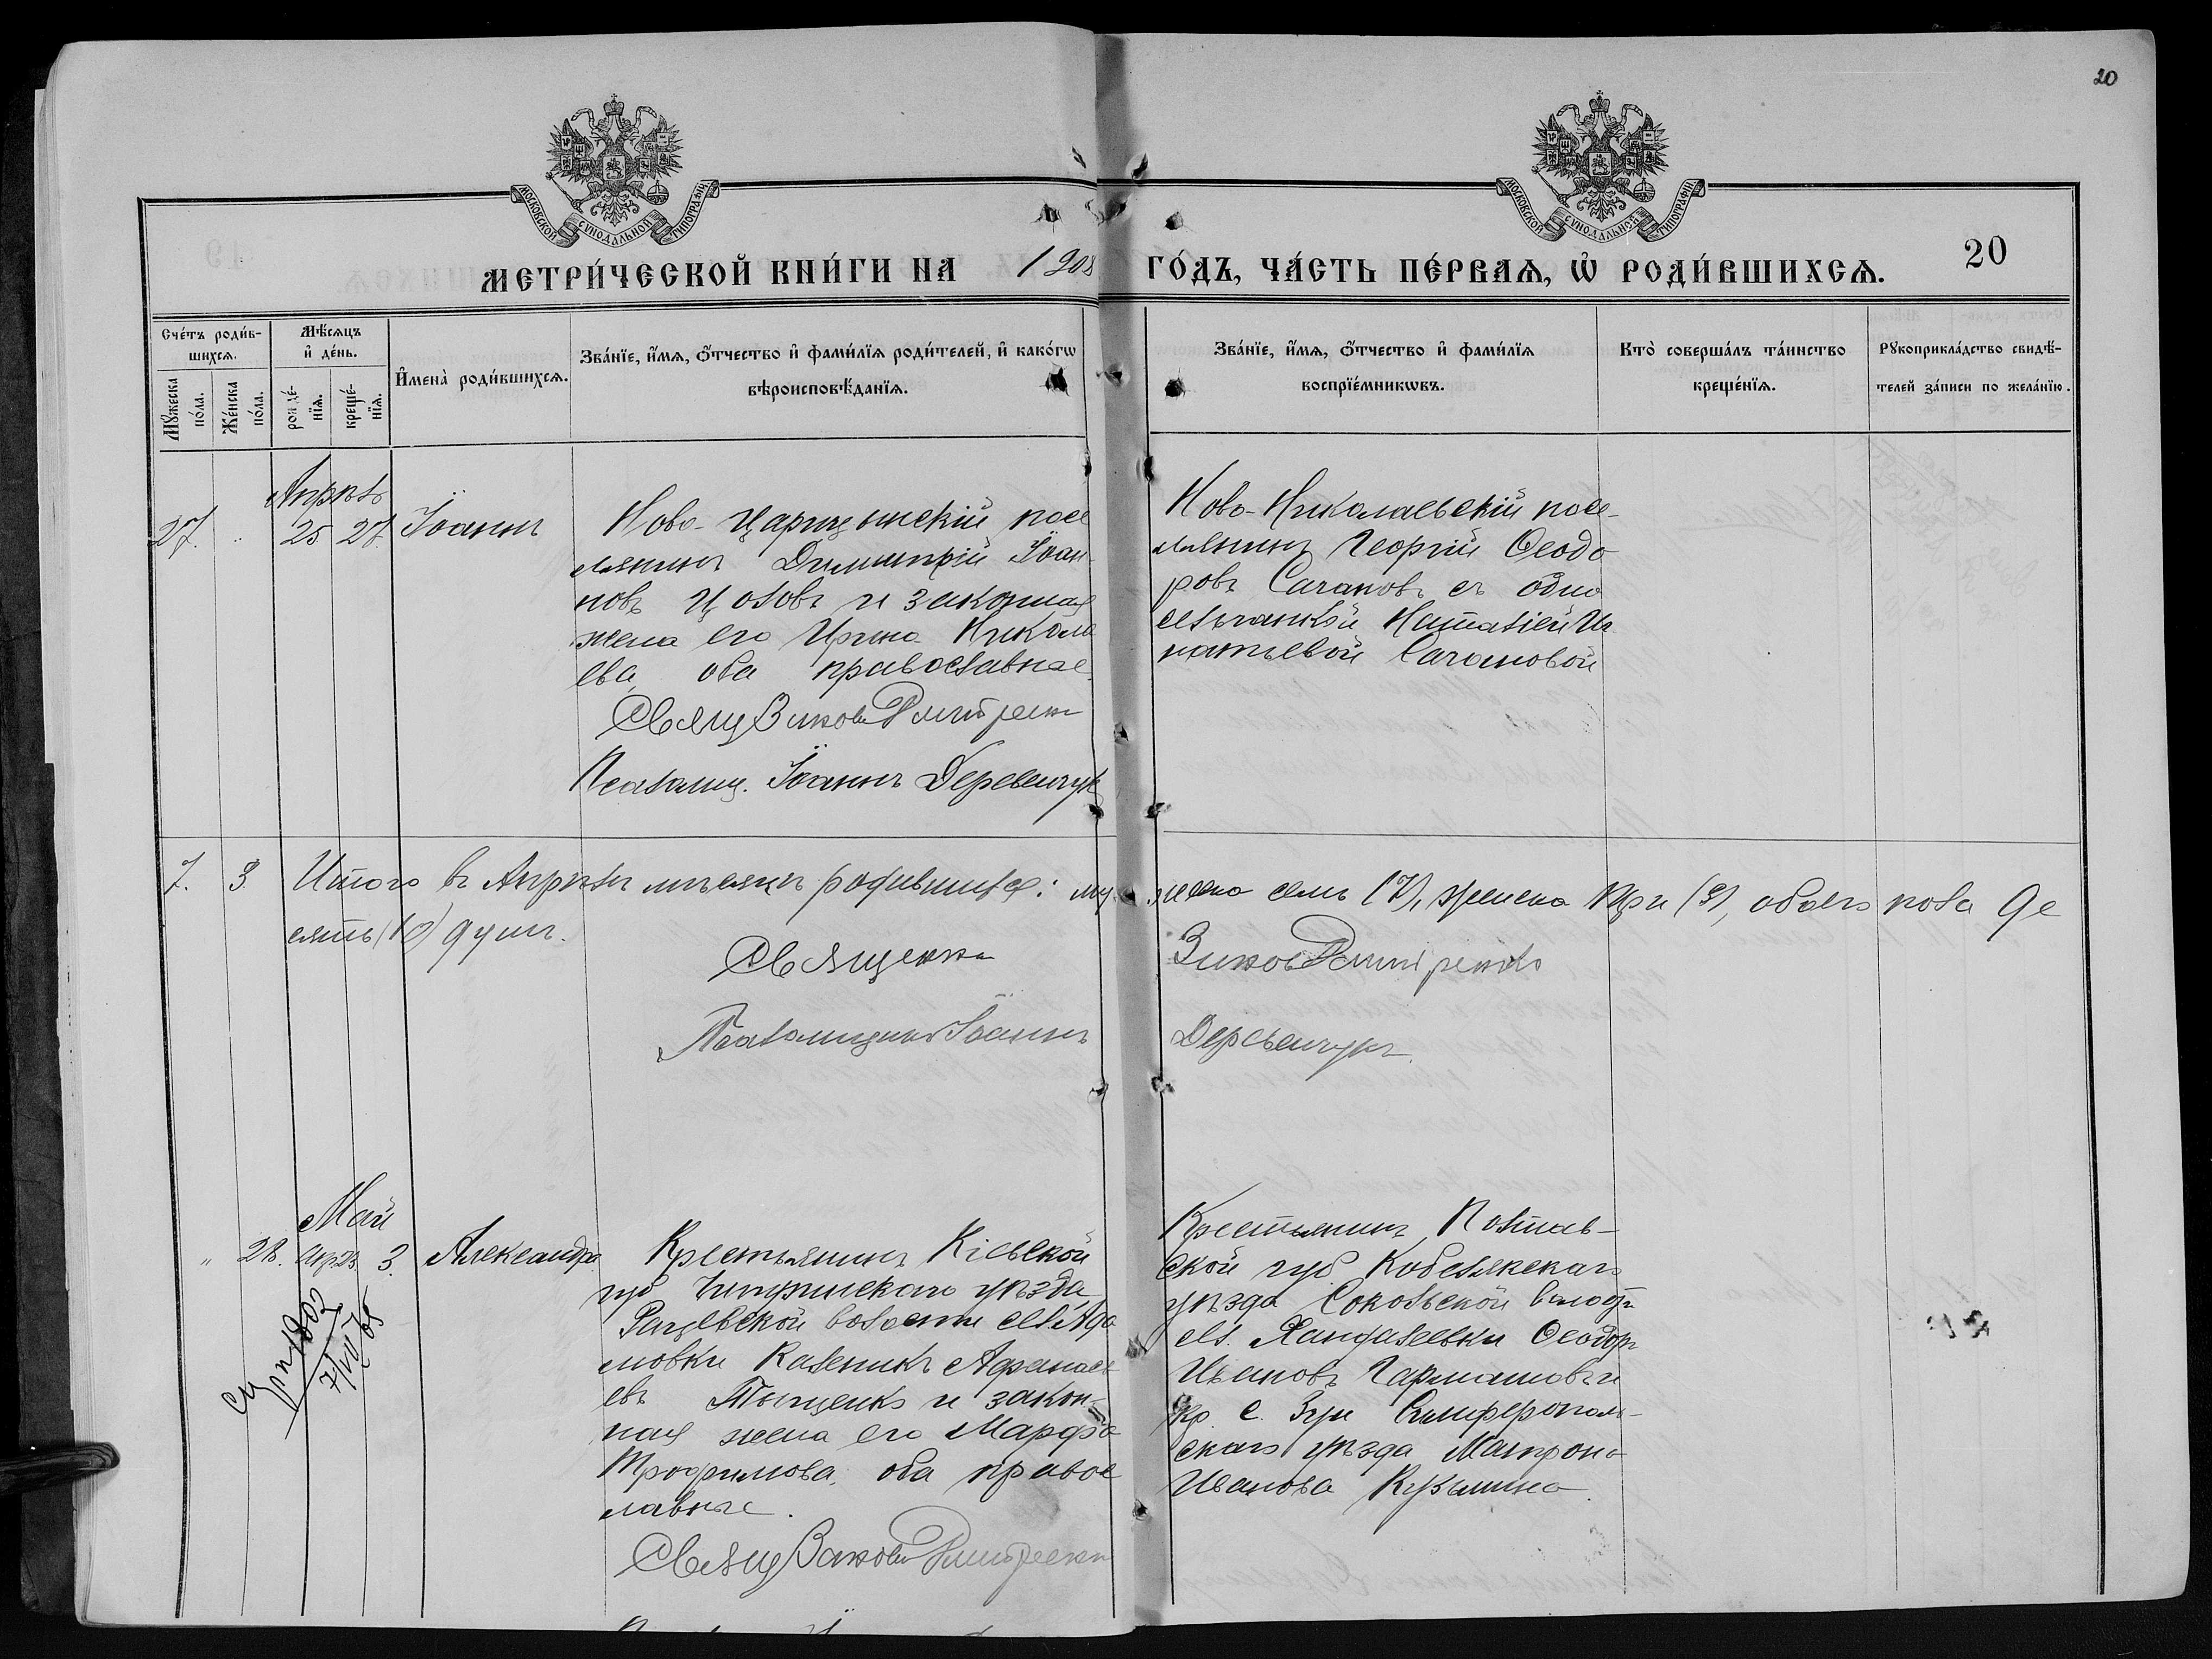 20
МОСКОВСКОЙ СѴНОДАЛЬНОЙ ТИПОГРАФІИ
МОСКОВСКОЙ СѴНОДАЛЬНОЙ ТИПОГРАФІИ
МЕТРИ́ЧЕСКОЙ КНИ́ГИ НА 1908 ГО́ДЪ, ЧА́СТЬ ПЕ́РВАѦ, Ѡ҆ РОДИ́ВШИХСѦ. 20
Сче́тъ роди́в-
шихсѧ.
Мꙋ́жеска по́ла.
Же́нска по́ла.
Мѣ́сѧцъ
и҆ де́нь.
рожде́-
нїѧ.
креще́-
нїѧ.
И҆мена̀ роди́вшихсѧ.
Зва́нїе, и҆́мѧ, ѻ҆́тчество и҆ фами́лїѧ роди́телей, и҆ како́гѡ
вѣроисповѣ́данїѧ.
Зва́нїе, и҆́мѧ, ѻ҆́тчество и҆ фами́лїѧ
воспрїе́мникѡвъ.
Кто̀ соверша́лъ та́инство
креще́нїѧ.
Рꙋкоприкла́дство свидѣ́-
телей за́писи по жела́нїю.
Апрѣль
27. " 25 27. Іоаннъ
Ново-Царицынскій посе
лянинъ Димитрій Іоан-
новъ Цоловъ и законная
жена его Ирина Никола
ева, оба православные
Свящ
Псаломщ. Іоаннъ Деревенчук
Ново-Николаевскій посе-
лянинъ Георгій Ѳеодо
ровъ Сачановъ съ одно
сельчанкой Наталіей Иг
натьевой Сачановой
7. 3 Итого въ Апрѣлѣ мѣсяцѣ родившихся: му жеска семь (7), женска три (3), обоего пола де
сять (10) душъ.
Священник
Псаломщикъ Іоаннъ Деревенчукъ.
Май
" 28. Апр. 23 3. Александра
Крестьянинъ Кіевской
губ Чигиринскаго уѣзда,
Рацевской волости сел. Ада
мовки Каленикъ Афанась
евъ Тыщенко и закон-
ная жена его Марфа
Трофимова, оба правос
лавные.
Свящ
Крестьянинъ Полтав-
ской губ Кобелякскаго
уѣзда Сокольской волост
сел. Ханделеевки Ѳеодоръ
Ивановъ и
кр. с. Зуи Симферополь-
скаго уѣзда Матрона
Иванова Кузьмина.